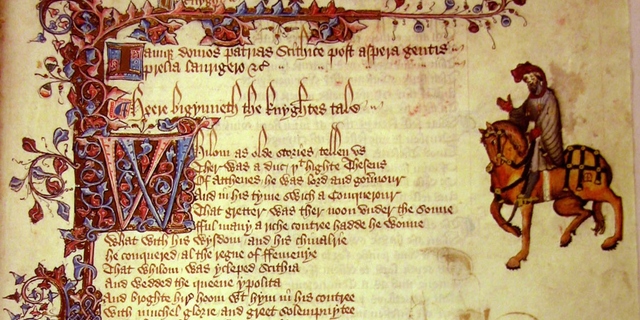 Iamque domos patrias Scithice post aspera gentis
prelia laurigero &c
Heere bigynneth the knyghtes tale
Whilom as olde stories tellen vs
Ther was a duc þt highte Theseus
Of Atthenes he was lord and gouernour
And in his tyme swich a Conquerour
That gretter was ther noon vnder the sonne
fful many a riche contree hadde he wonne
What with his wysdom and his chiualrie
he conquered al the regne of ffemenye
That whilom was ycleped Scithia
And wedded the queene ypolita
And broghte hir hoom wt hym in his contree
With muchel glorie and greet solempnytee